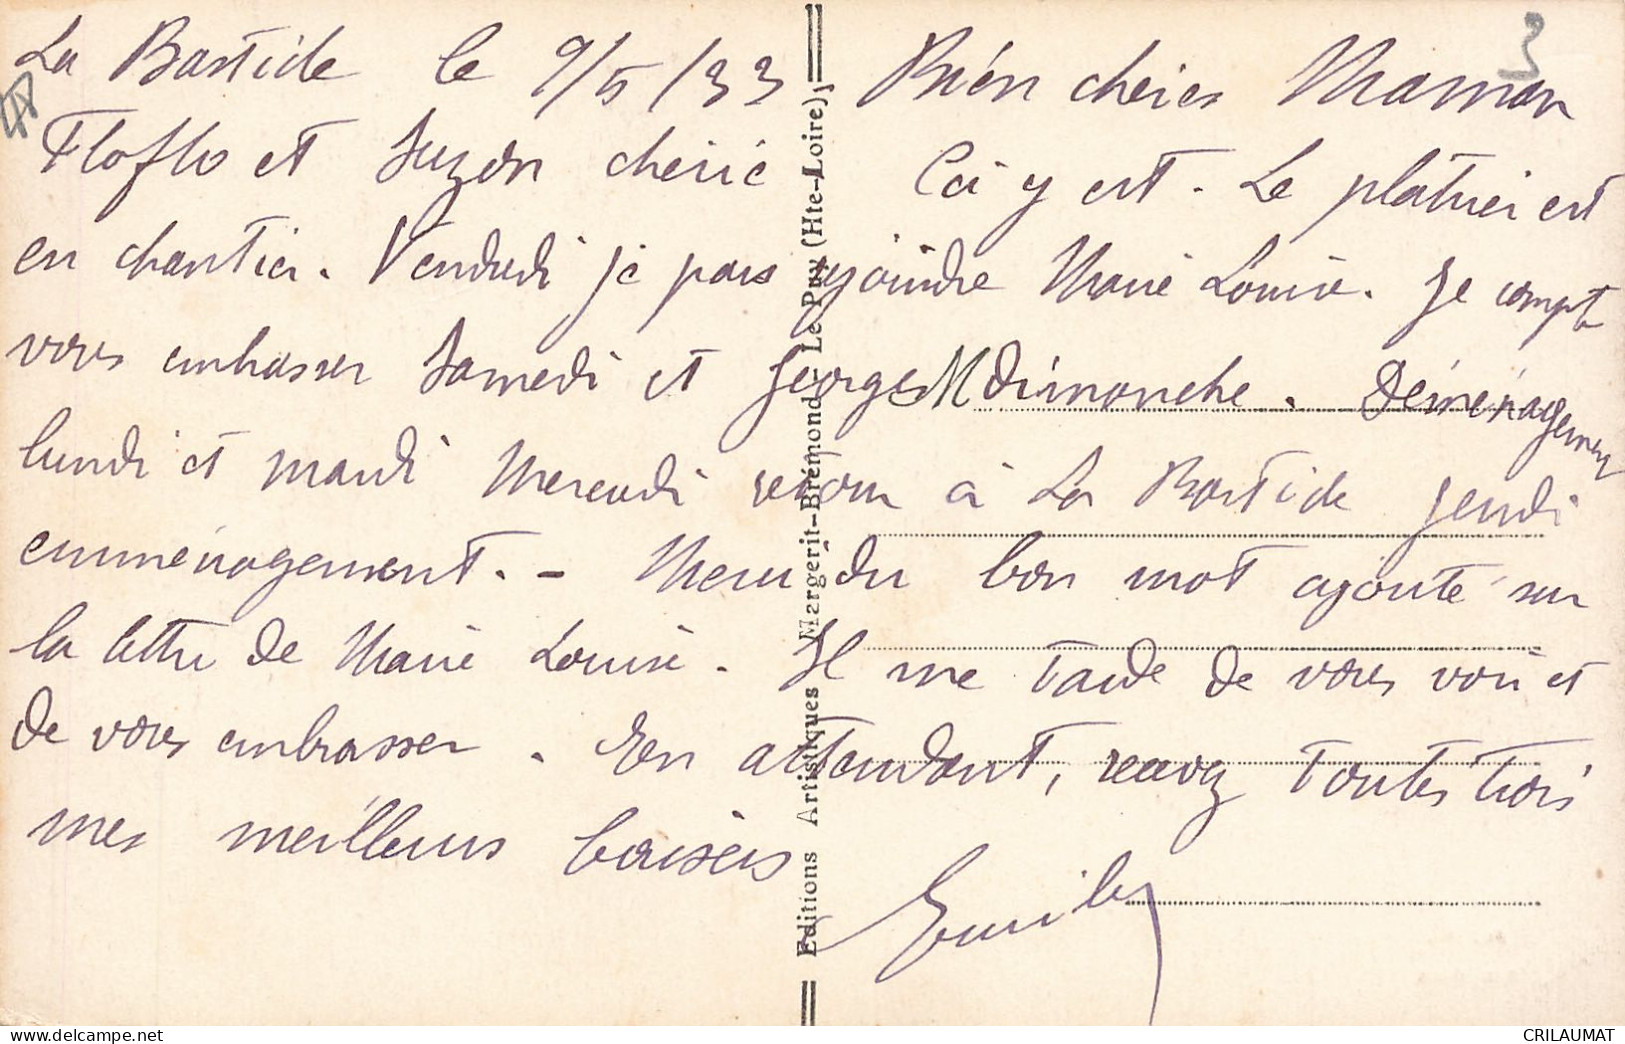 La Bastide le 9/5/33 Bien chères Maman
Floflo et Suzon chérie Ca y est. Le platrier est
en chantier. Vendredi je pars rejoindre Marie Louise. Je compte
vous embrasser Samedi et Georges M dimanche. Déménagement
lundi et mardi Mercredi retour à La Bastide jeudi
emménagement. - Merci du bon mot ajouté sur
la lettre de Marie Louise. Il me tarde de vous voir et
de vous embrasser. En attendant, recevez toutes trois
mes meilleurs baisers
Emile
Editions Artistiques Margerit-Brémond - Le Puy (Hte-Loire)
3
CRILAUMAT